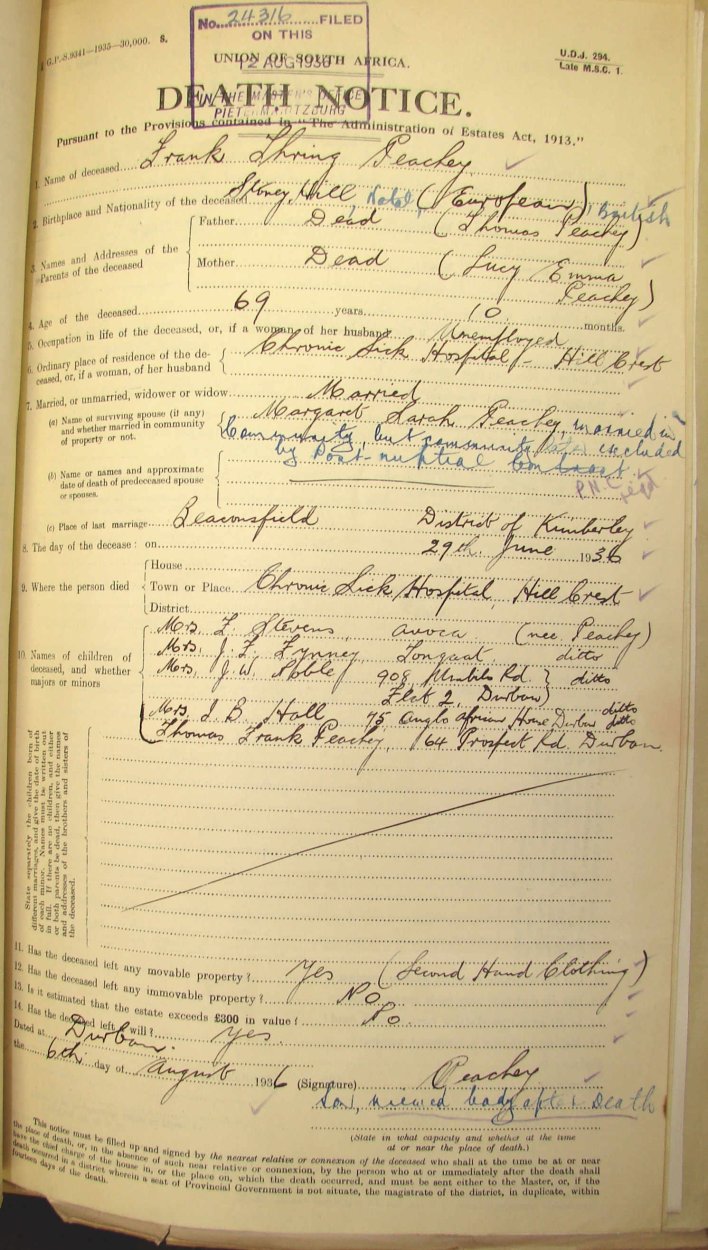 No. 24316 FILED
ON THIS
12 AUG 1936
IN THE MASTER'S OFFICE
PIETERMARITZBURG
G.P.-S.9341—1935—30,000. S.
U.D.J. 294.
Late M.S.C. 1.
UNION OF SOUTH AFRICA.
DEATH NOTICE.
Pursuant to the Provisions contained in "The Administration of Estates Act, 1913."
1. Name of deceased Frank Thring Peachey
2. Birthplace and Nationality of the deceased Stoney Hill, Natal, (European) British
3. Names and Addresses of the Parents of the deceased
Father Dead (Thomas Peachey)
Mother Dead (Lucy Emma
Peachey)
4. Age of the deceased 69 years 10 months.
5. Occupation in life of the deceased, or, if a woman of her husband Unemployed
6. Ordinary place of residence of the deceased, or, if a woman, of her husband Chronic Sick Hospital - Hill Crest
7. Married, or unmarried, widower or widow Married
(a) Name of surviving spouse (if any) and whether married in community of property or not. Margaret Sarah Peachey, married in
Community, but community excluded
by Post-nuptial Contract.
(b) Name or names and approximate date of death of predeceased spouse or spouses.
P.N.C.
(c) Place of last marriage Beaconsfield District of Kimberley
8. The day of the decease: on 29th June 1936
9. Where the person died
House
Town or Place Chronic Sick Hospital, Hill Crest
District
10. Names of children of deceased, and whether majors or minors
Mrs. F. Stevens, Avoca (nee Peachey)
Mrs. J. F. Tongaat, ditto
Mrs. J. W. 908 Umbilo Rd. ditto
Flat 2, Durban
Mrs. I. B. Hall 75 Anglo African House Durban ditto
Thomas Frank Peachey, 64 Prospect Rd. Durban
State separately the children born of
different marriages, and give the date of birth
of each minor. Names must be written out
in full. If there are no children, and either
or both parents be dead, then give the names
and addresses of the brothers and sisters of
the deceased.
11. Has the deceased left any movable property? Yes (Second Hand Clothing)
12. Has the deceased left any immovable property? No
13. Is it estimated that the estate exceeds £300 in value? No
14. Has the deceased left a will? Yes.
Dated at Durban.
the 6th day of August 1936 (Signature) Peachey
Son, viewed body after Death
(State in what capacity and whether at the time
at or near the place of death.)
This notice must be filled up and signed by the nearest relative or connexion of the deceased who shall at the time be at or near
the place of death, or, in the absence of such near relative or connexion, by the person who at or immediately after the death shall
have the chief charge of the house in, or the place on, which the death occurred, and must be sent either to the Master, or, if the
death occurred in a district wherein a seat of Provincial Government is not situate, the magistrate of the district, in duplicate, within
fourteen days of the death.